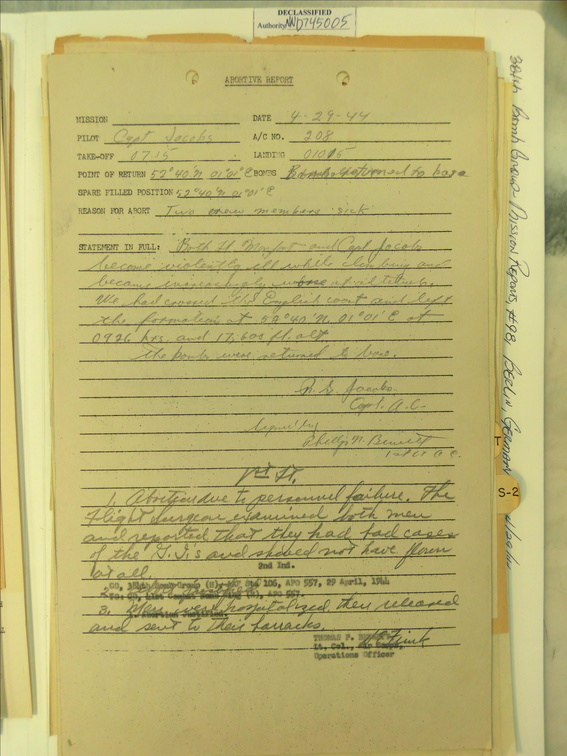 DECLASSIFIED
Authority NND745005
ABORTIVE REPORT
MISSION
DATE 4-29-44
PILOT Capt Jacobs
A/C NO. 208
TAKE-OFF 0715
LANDING 01015
POINT OF RETURN 52°40'N 01°01'E BOMBS Bombs returned to base
SPARE FILLED POSITION 52°40'N 01°01'E
REASON FOR ABORT Two crew members sick
STATEMENT IN FULL: Both Lt and Capt Jacobs
became violently ill while climbing and
became increasingly worse
We had crossed the English coast and left
the formation at 52°40'N, 01°01'E at
0926 hrs. and 17,600 ft. alt.
The bombs were returned to base.
Jacobs
Capt. A.C.
Signed by
Phillip N. Bennett
1st Lt A.C.
1st
1. Abortion due to personnel failure. The
flight surgeon examined both men
and reported that they had bad cases
of the G.I.'s and should not have flown
at all.
2nd Ind.
CO, 384th Bomb Group (H), 106, APO 557, 29 April, 1944
TO: CO, 41st Combat Bomb Wing (H), APO 557.
3. Men were hospitalized then released
and sent to their barracks.
THOMAS P.
Lt. Col., Air Corps,
Operations Officer
384th Bomb Group Mission Reports, #98, BERLIN, GERMANY
S-2